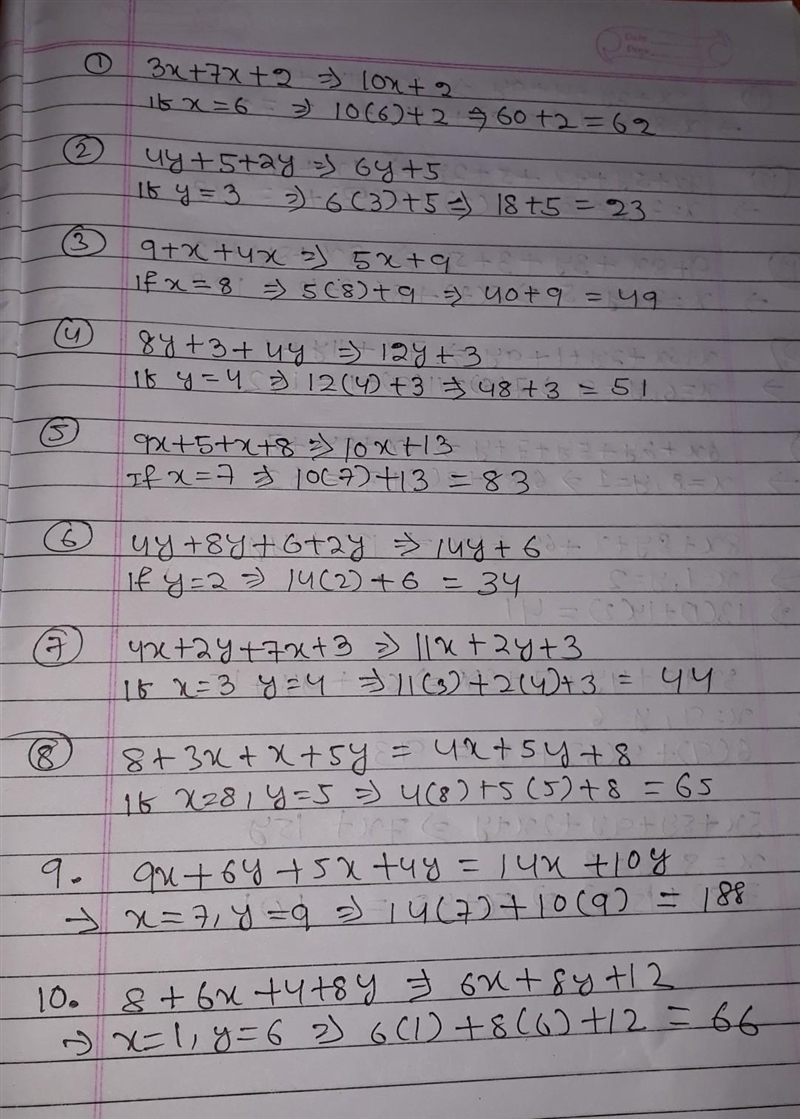 Date
Page
① 3x+7x+2 ⇒ 10x+2
If x=6 ⇒ 10(6)+2 ⇒ 60+2=62
② 4y+5+2y ⇒ 6y+5
If y=3 ⇒ 6(3)+5 ⇒ 18+5=23
③ 9+x+4x ⇒ 5x+9
If x=8 ⇒ 5(8)+9 ⇒ 40+9=49
④ 8y+3+4y ⇒ 12y+3
If y=4 ⇒ 12(4)+3 ⇒ 48+3=51
⑤ 9x+5+x+8 ⇒ 10x+13
If x=7 ⇒ 10(7)+13=83
⑥ 4y+8y+6+2y ⇒ 14y+6
If y=2 ⇒ 14(2)+6=34
⑦ 4x+2y+7x+3 ⇒ 11x+2y+3
If x=3 y=4 ⇒ 11(3)+2(4)+3=44
⑧ 8+3x+x+5y=4x+5y+8
If x=8, y=5 ⇒ 4(8)+5(5)+8=65
9. 9x+6y+5x+4y=14x+10y
→ x=7, y=9 ⇒ 14(7)+10(9)=188
10. 8+6x+4+8y ⇒ 6x+8y+12
⇒ x=1, y=6 ⇒ 6(1)+8(6)+12=66